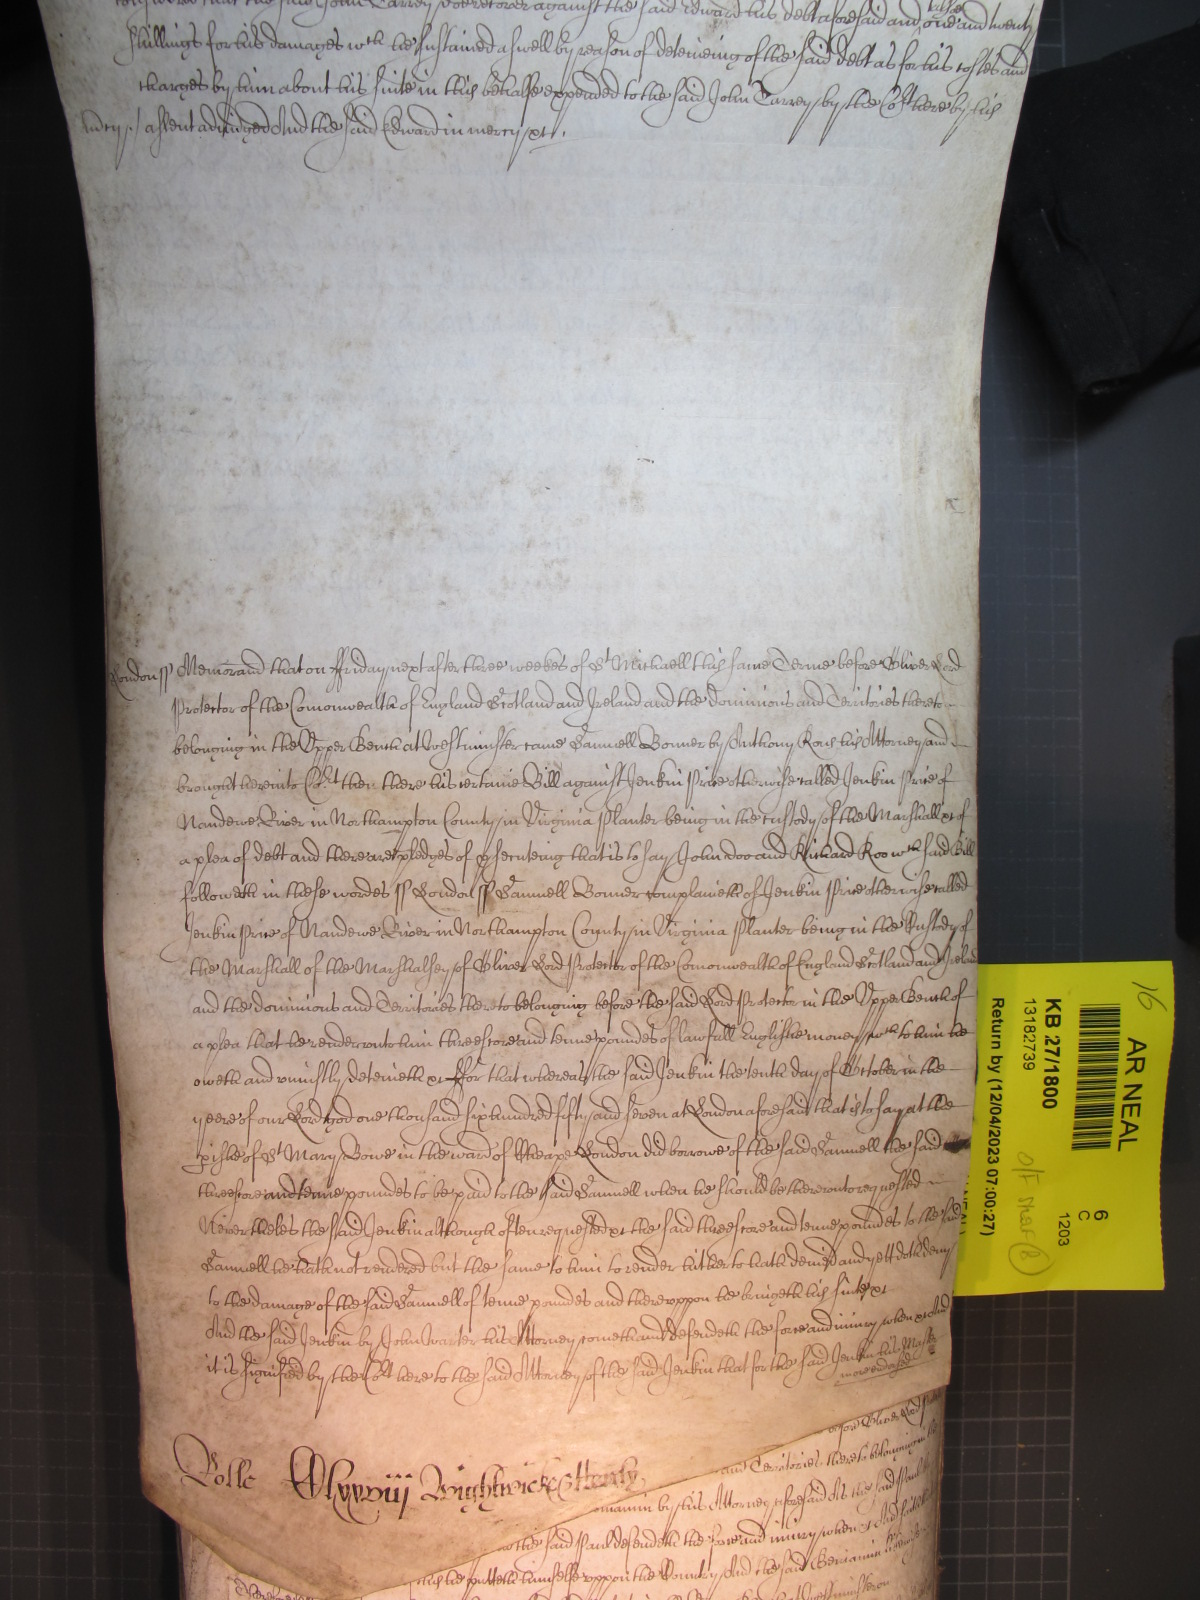 considered that the said John Carrey doe recover against the said Edward his debt aforesaid and one and twenty
shillings for his damages wch he sustained aswell by reason of deteineing of the said debt as for his costes and
charges by him about his suite in this behalfe expended to the said John Carrey by the Cort here by his
assent adjudged And the said Edward in mercy xc.
London ss Memorand that on ffriday next after three weekes of St Michaell this same Terme before Oliver Lord
Protector of the Comonwealth of England Scotland and Ireland and the dominions and Territories thereto
belonging in the Upper Bench at Westminster came Samuell Bonner by Anthony his Attorney and
brought here into Cort then there his certaine Bill against Jenkin Price otherwise called Jenkin Price of
Nandewe River in Northampton County in Virginia Planter being in the custody of the Marshall xc of
a plea of debt and there are pledges of psecuteing that is to say John doo and Richard Roo wch said Bill
followeth in these wordes ss London ss Samuell Bonner complaineth of Jenkin Price otherwise called
Jenkin Price of Nandewe River in Northampton County in Virginia Planter being in the Custody of
the Marshall of the Marshalsey of Oliver Lord Protector of the Comonwealth of England Scotland and Ireland
and the dominions and Territories thereto belonging before the said Lord Protector in the Upper Bench of
a plea that he render unto him threescore and tenne poundes of lawfull Englishe money wch to him he
oweth and uniustly deteineth xc ffor that whereas the said Jenkin the tenth day of October in the
yeere of our Lord god one thousand six hundred fifty and seven at London aforesaid that is to say at the
pishe of St Mary Bowe in the ward of Cheape London did borrowe of the said Samuell the said
threescore and tenne poundes to be paid to the said Samuell when he should be thereunto requested
Neverthelés the said Jenkin although often requested xc the said threescore and tenne poundes to the said
Samuell he hath not rendered but the same to him to render hitherto hath denied and yett doth deny
to the damage of the said Samuell of tenne poundes and thereuppon he bringeth his suite xc
And the said Jenkin by John Warter his Attorney cometh and defendeth the force and iniury when xc And
it is signified by the Cort here to the said Attorney of the said Jenkin that for the said Jenkin his Master
Rolle Wightwicke
before Oliver Lord
and Territories thereto belonging
by his Attorney aforesaid As the said Paul
the said Paul defendeth the force and iniury when xc And
he putteth himselfe uppon the Country And the said Beniamin
16
AR NEAL
6
C
1203
KB 27/1800
13182739
Return by (12/04/2023 07:00:27)